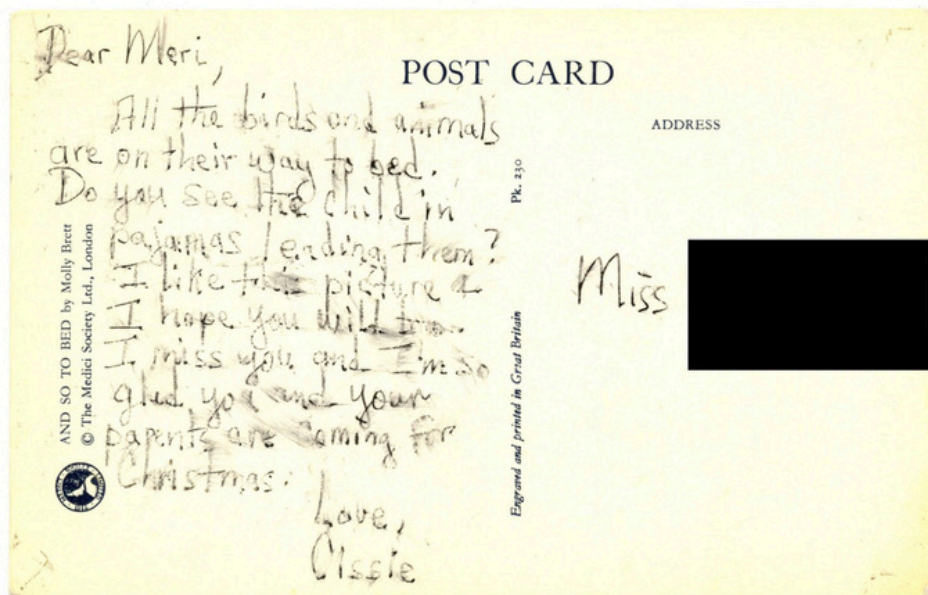 Dear Meri,
All the birds and animals
are on their way to bed.
Do you see the child in
pajamas leading them?
I like this picture &
I hope you will too.
I miss you and I'm so
glad you and your
parents are coming for
Christmas.
Love,
Cissie
AND SO TO BED by Molly Brett
© The Medici Society Ltd., London
POST CARD
Pk. 230
Engraved and printed in Great Britain
ADDRESS
Miss